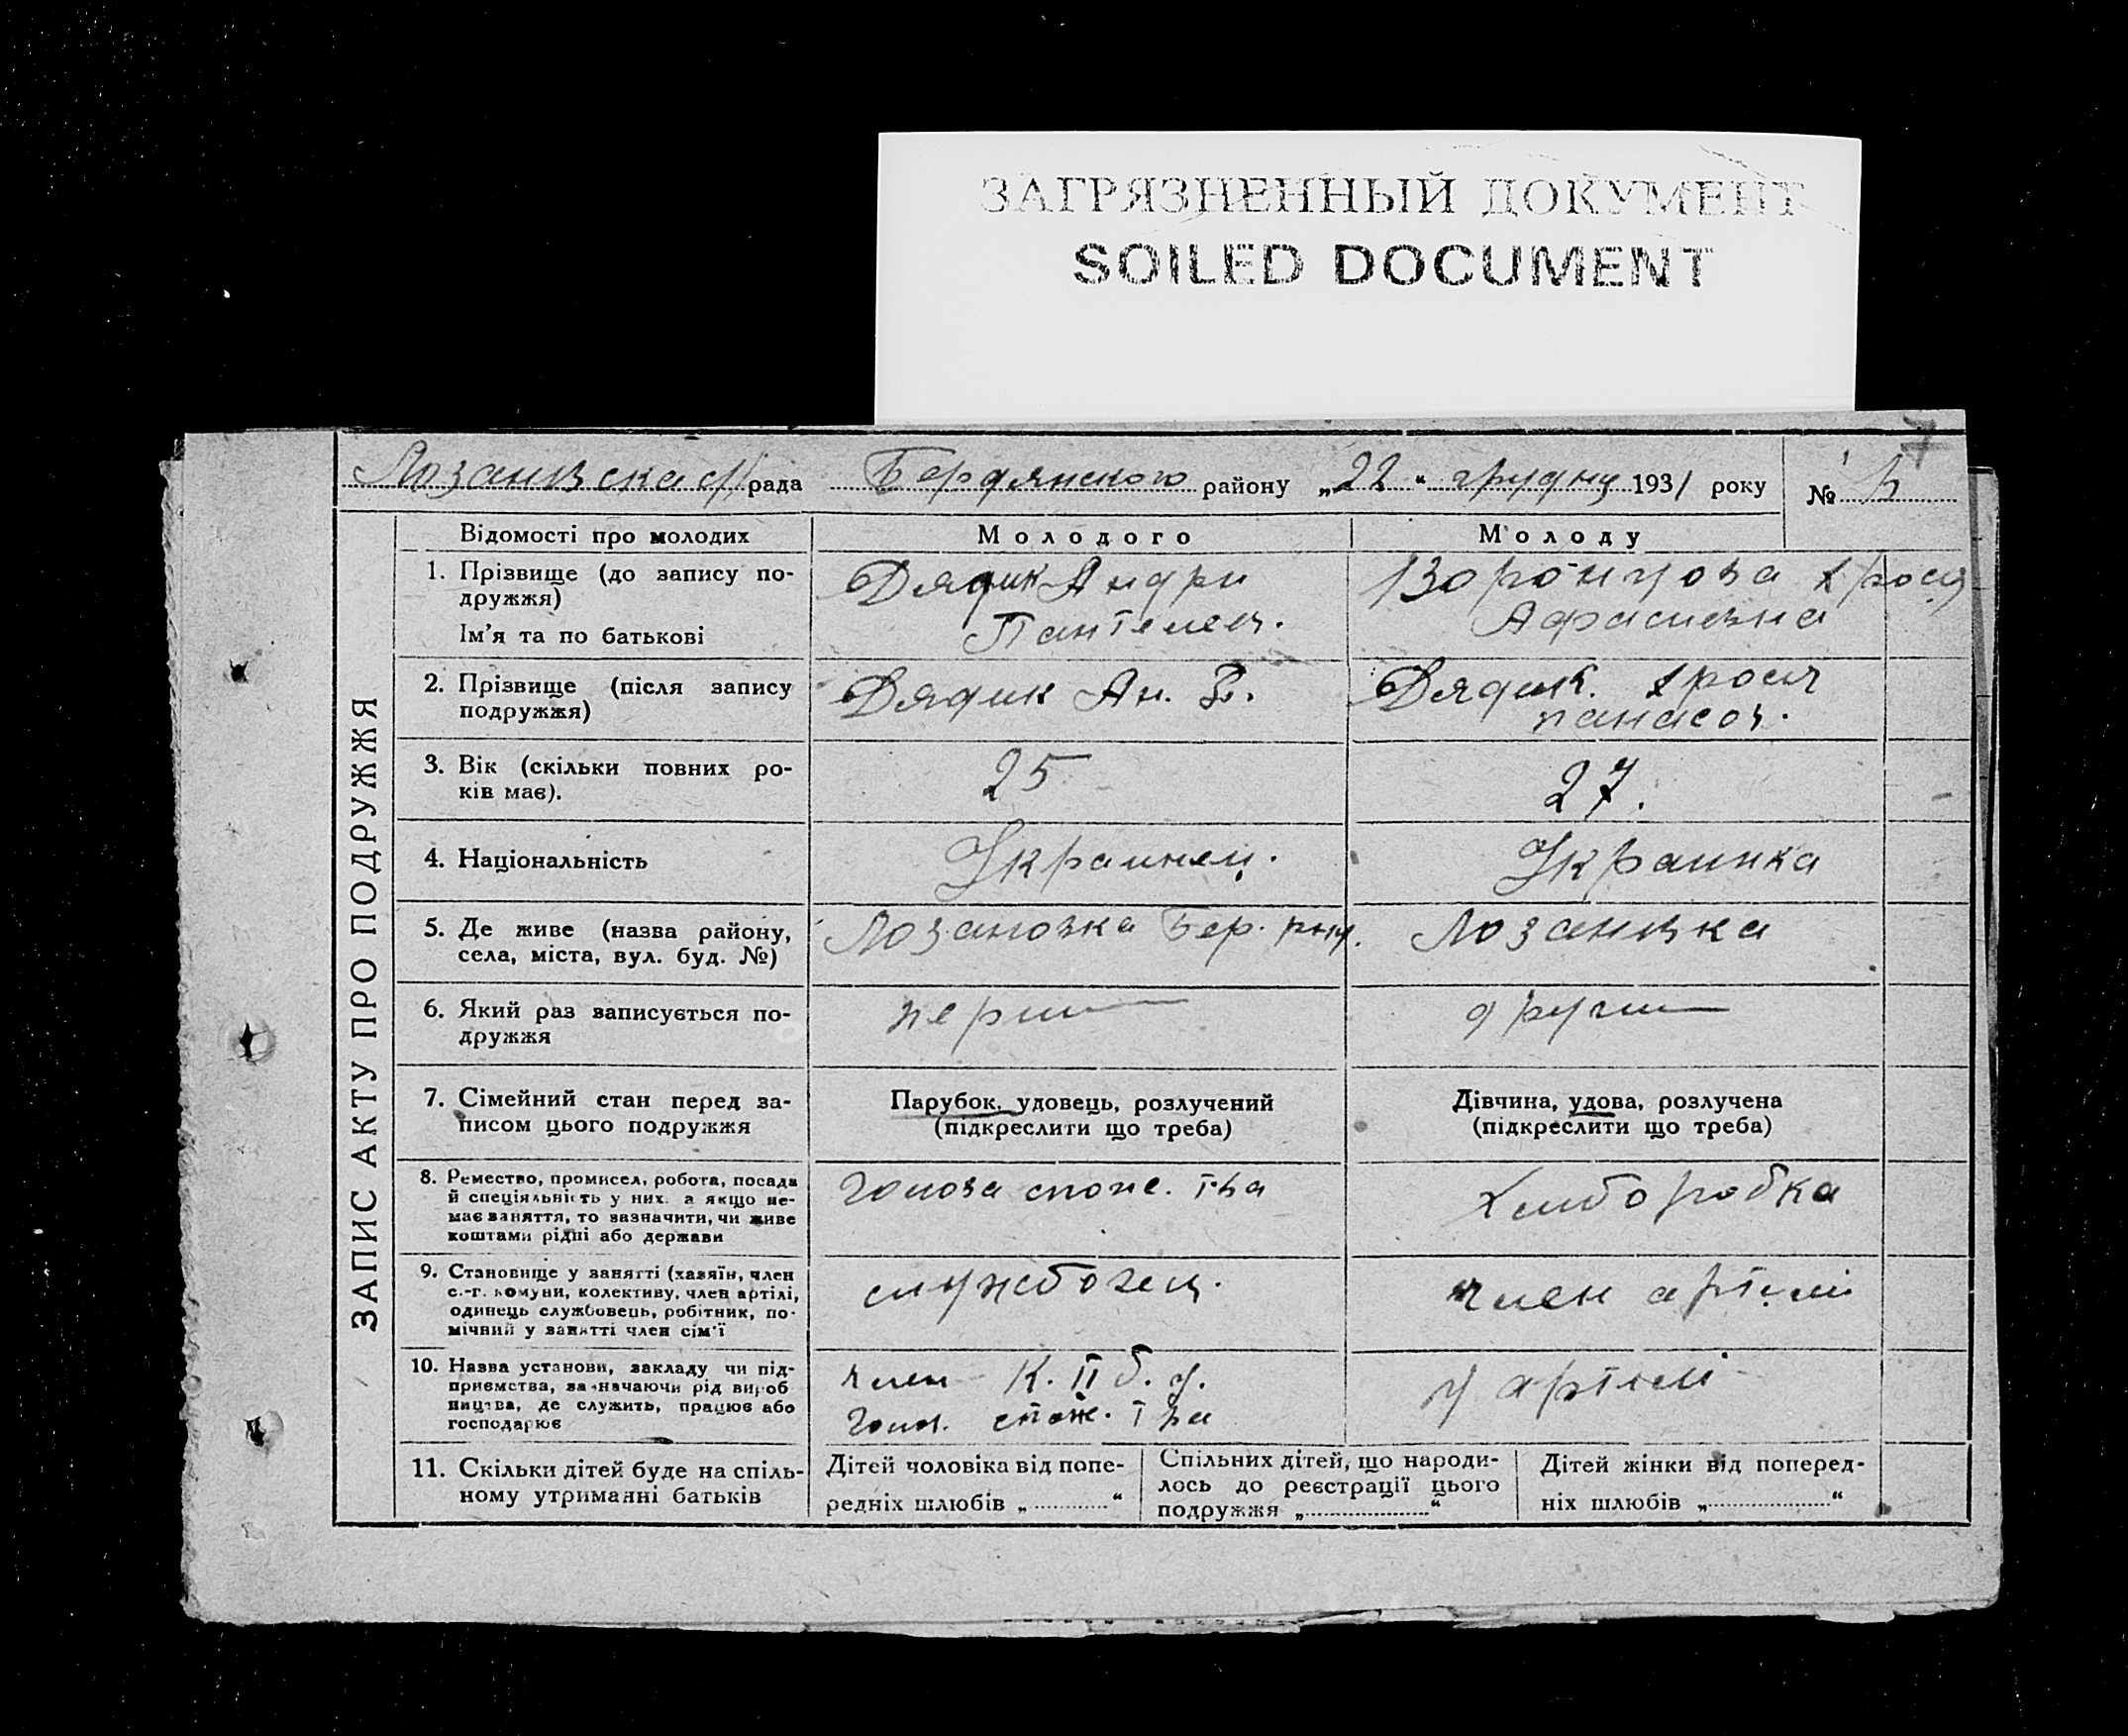 ЗАГРЯЗНЕННЫЙ ДОКУМЕНТ
SOILED DOCUMENT
рада Бердянского району „22“ грудня 1931 року №
ЗАПИС АКТУ ПРО ПОДРУЖЖЯ
Відомості про молодих
Молодого
Молоду
1. Прізвище (до запису по-
дружжя)
Ім'я та по батькові
Дядик Андри
Пантелей.
Воронцова
2. Прізвище (після запису
подружжя)
Дядик Ан. П.
Дядик.
3. Вік (скільки повних ро-
ків має).
25
27.
4. Національність
Украинец.
Украинка
5. Де живе (назва району,
села, міста, вул. буд. №)
Лозановка Бер. рну.
Лозанівка
6. Який раз записується по-
дружжя
перши
други
7. Сімейний стан перед за-
писом цього подружжя
Парубок, удовець, розлучений
(підкреслити що треба)
Дівчина, удова, розлучена
(підкреслити що треба)
8. Ремество, промисел, робота, посада
й спеціяльність у них, а якщо не-
має заняття, то зазначити, чи живе
коштами рідні або держави
Голова спож. т-ва
Хлиборобка
9. Становище у занятті (хазяїн, член
с.-г. комуни, колективу, член артілі,
одинець службовець, робітник, по-
мічний у занятті член сім'ї
службовец.
член артелі
10. Назва установи, закладу чи під-
приємства, зазначаючи рід вироб
ництва, де служить, працює або
господарює
член К.П б. у.
Гол. спож. т ва
у артелі
11. Скільки дітей буде на спіль-
ному утриманні батьків
Дітей чоловіка від попе-
редніх шлюбів „............“
Спільних дітей, що народи-
лось до реєстрації цього
подружжя „............“
Дітей жінки від поперед-
ніх шлюбів „............“